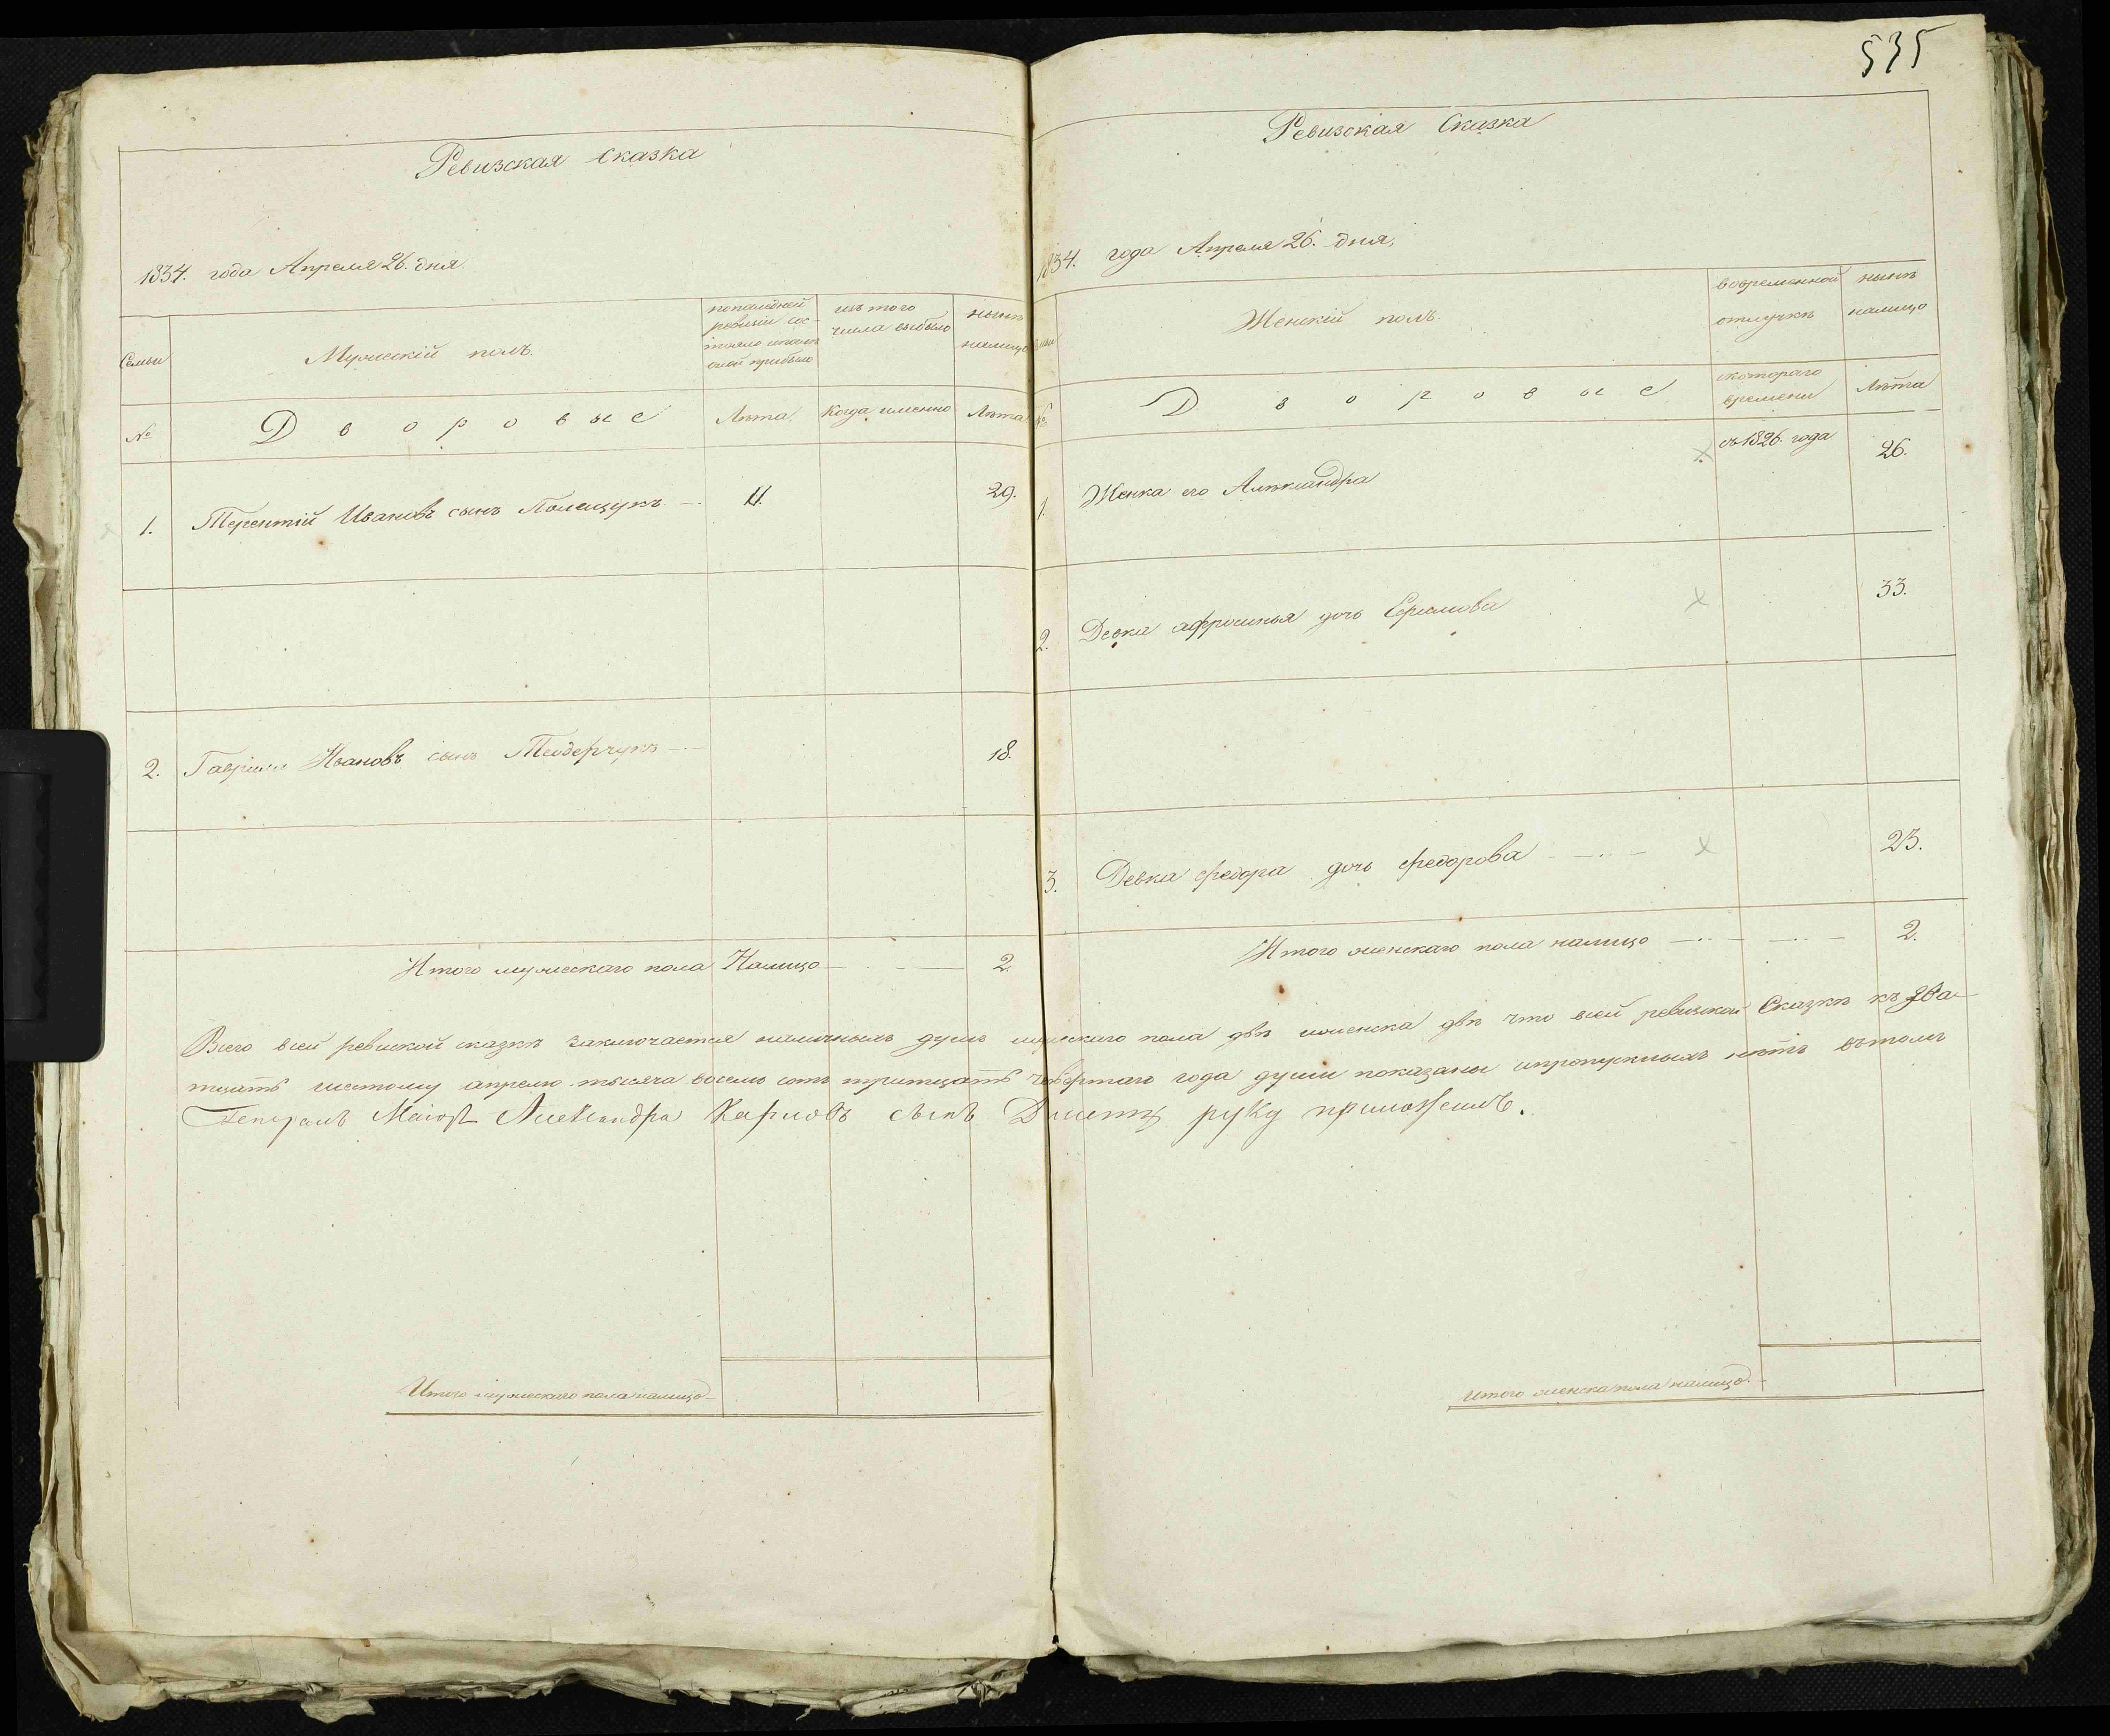 535
Ревизская сказка
1834. года Апреля 26. дня.
Семьи
Мужескій полъ.
по последней
ревизіи сос-
тояло и после
оной прибыло
изъ того
числа выбыло
нынѣ
налицо
№
Дворовые
Лѣта.
Когда именно
Лѣта
1. Терентій Ивановъ сынъ Полещукъ — 11. 29.
2. Гаврило Ивановъ сынъ 18.
Итого мужескаго пола Налицо — 2.
Ревизская Сказка
1834. года Апреля 26. дня,
Семьи
Женскій полъ.
вовременной
отлучкѣ
нынѣ
налицо
№
Дворовые
скотораго
времени
Лѣта
1. Женка его Александра съ 1826. года 26.
2. Девка афросинья дочь 33.
3. Девка федора дочь федорова 23.
Итого женскаго пола налицо 2.
Всего всей ревиской сказкѣ заключается наличныхъ душъ мужескаго пола двѣ иженска двѣ что всей ревизкой Сказкѣ къ два-
тцать шестому апрелю тысяча восемь сотъ тритцать четвертаго года души показаны ипропускныхъ нѣтъ вътомъ
Генералъ Маіоръ Александра Карповъ сынъ руку приложилъ.
Итого мужескаго пола налицо —
Итого женска пола налицо. —